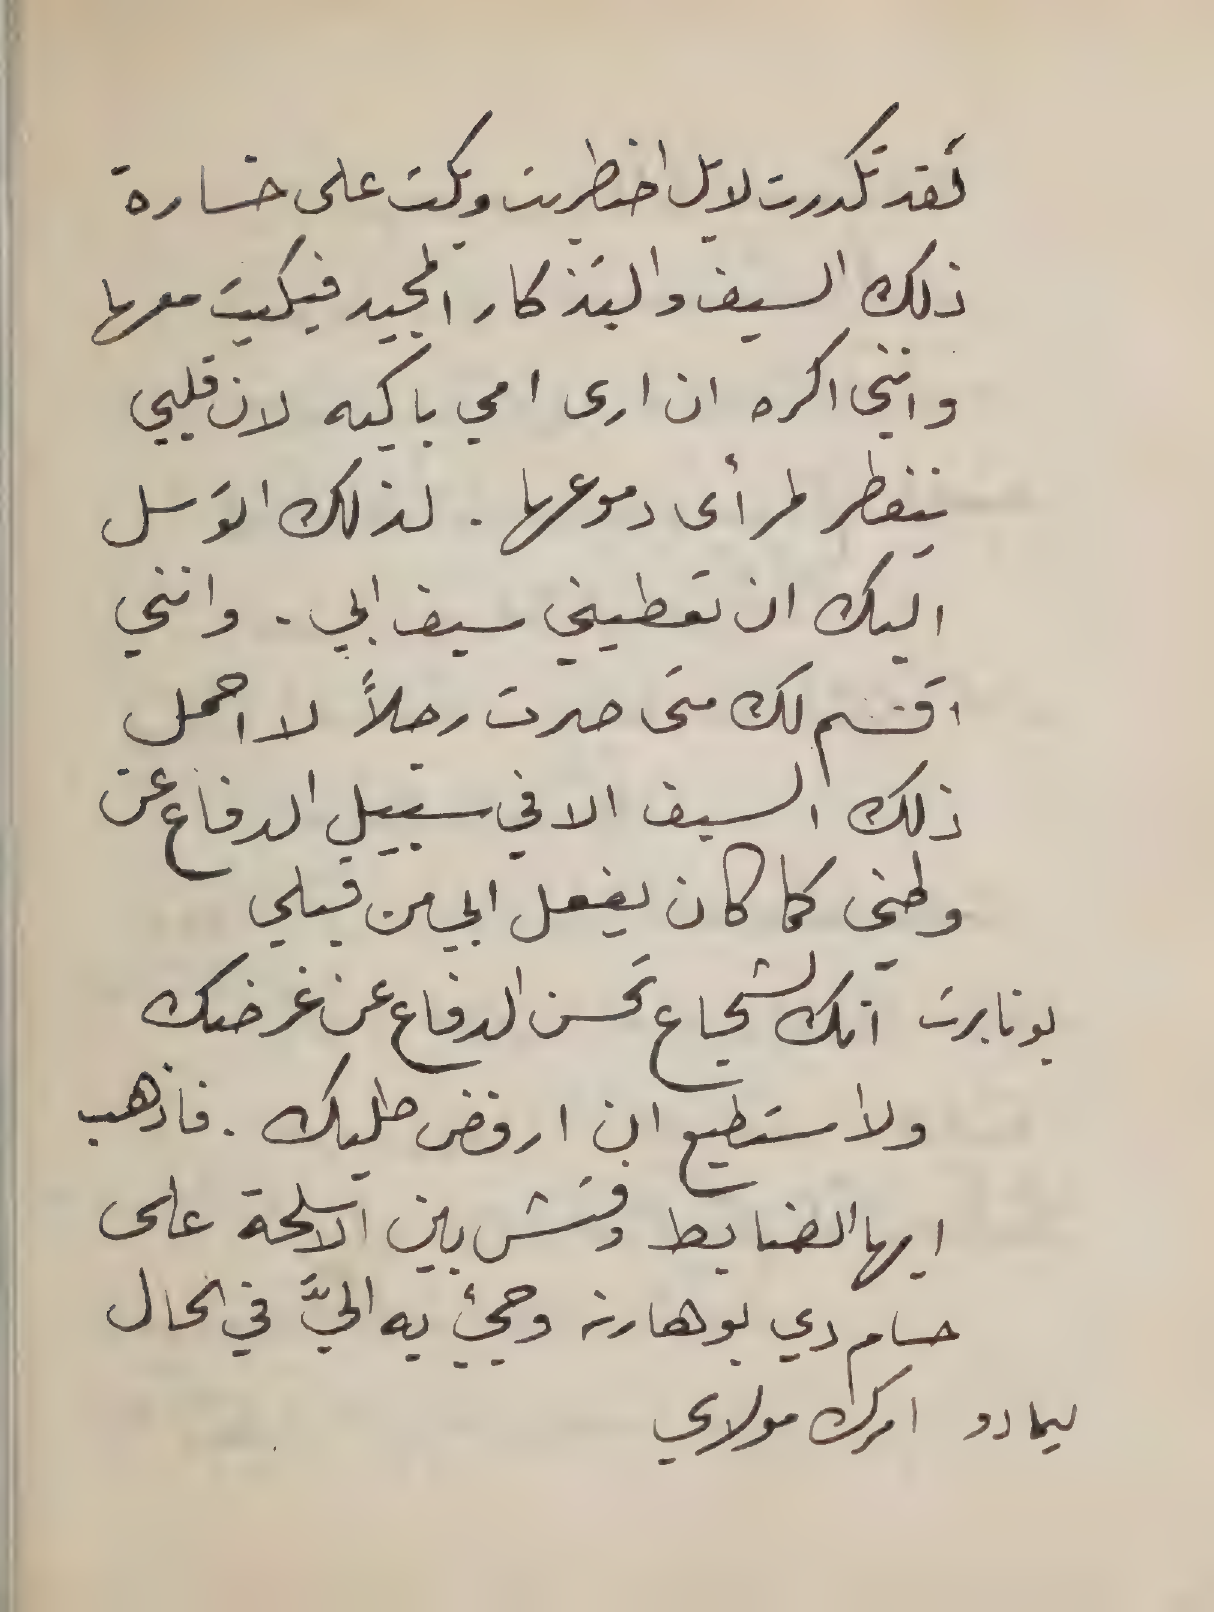 لقد تكدرت لا بل اضطربت وبكت على خسارة
ذلك السيف والتذكار المجيد فبكيت معها
وانني اكره ان ارى امي باكيه لان قلبي
يتفطر لمرأى دموعها . لذلك اتوسل
اليك ان تعطيني سيف ابي . وانني
اقسم لك متى صرت رجلاً لا احمل
ذلك السيف الا في سبيل الدفاع عن
وطني كما كان يفعل ابي من قبلي
بونابرت انك لشجاع تحسن الدفاع عن غرضك
ولا استطيع ان ارفض طلبك . فاذهب
ايها الضابط وفتش بين الاسلحة على
حسام دي بوهارنه وجئ به اليَّ في الحال
ليمادو امرك مولاي